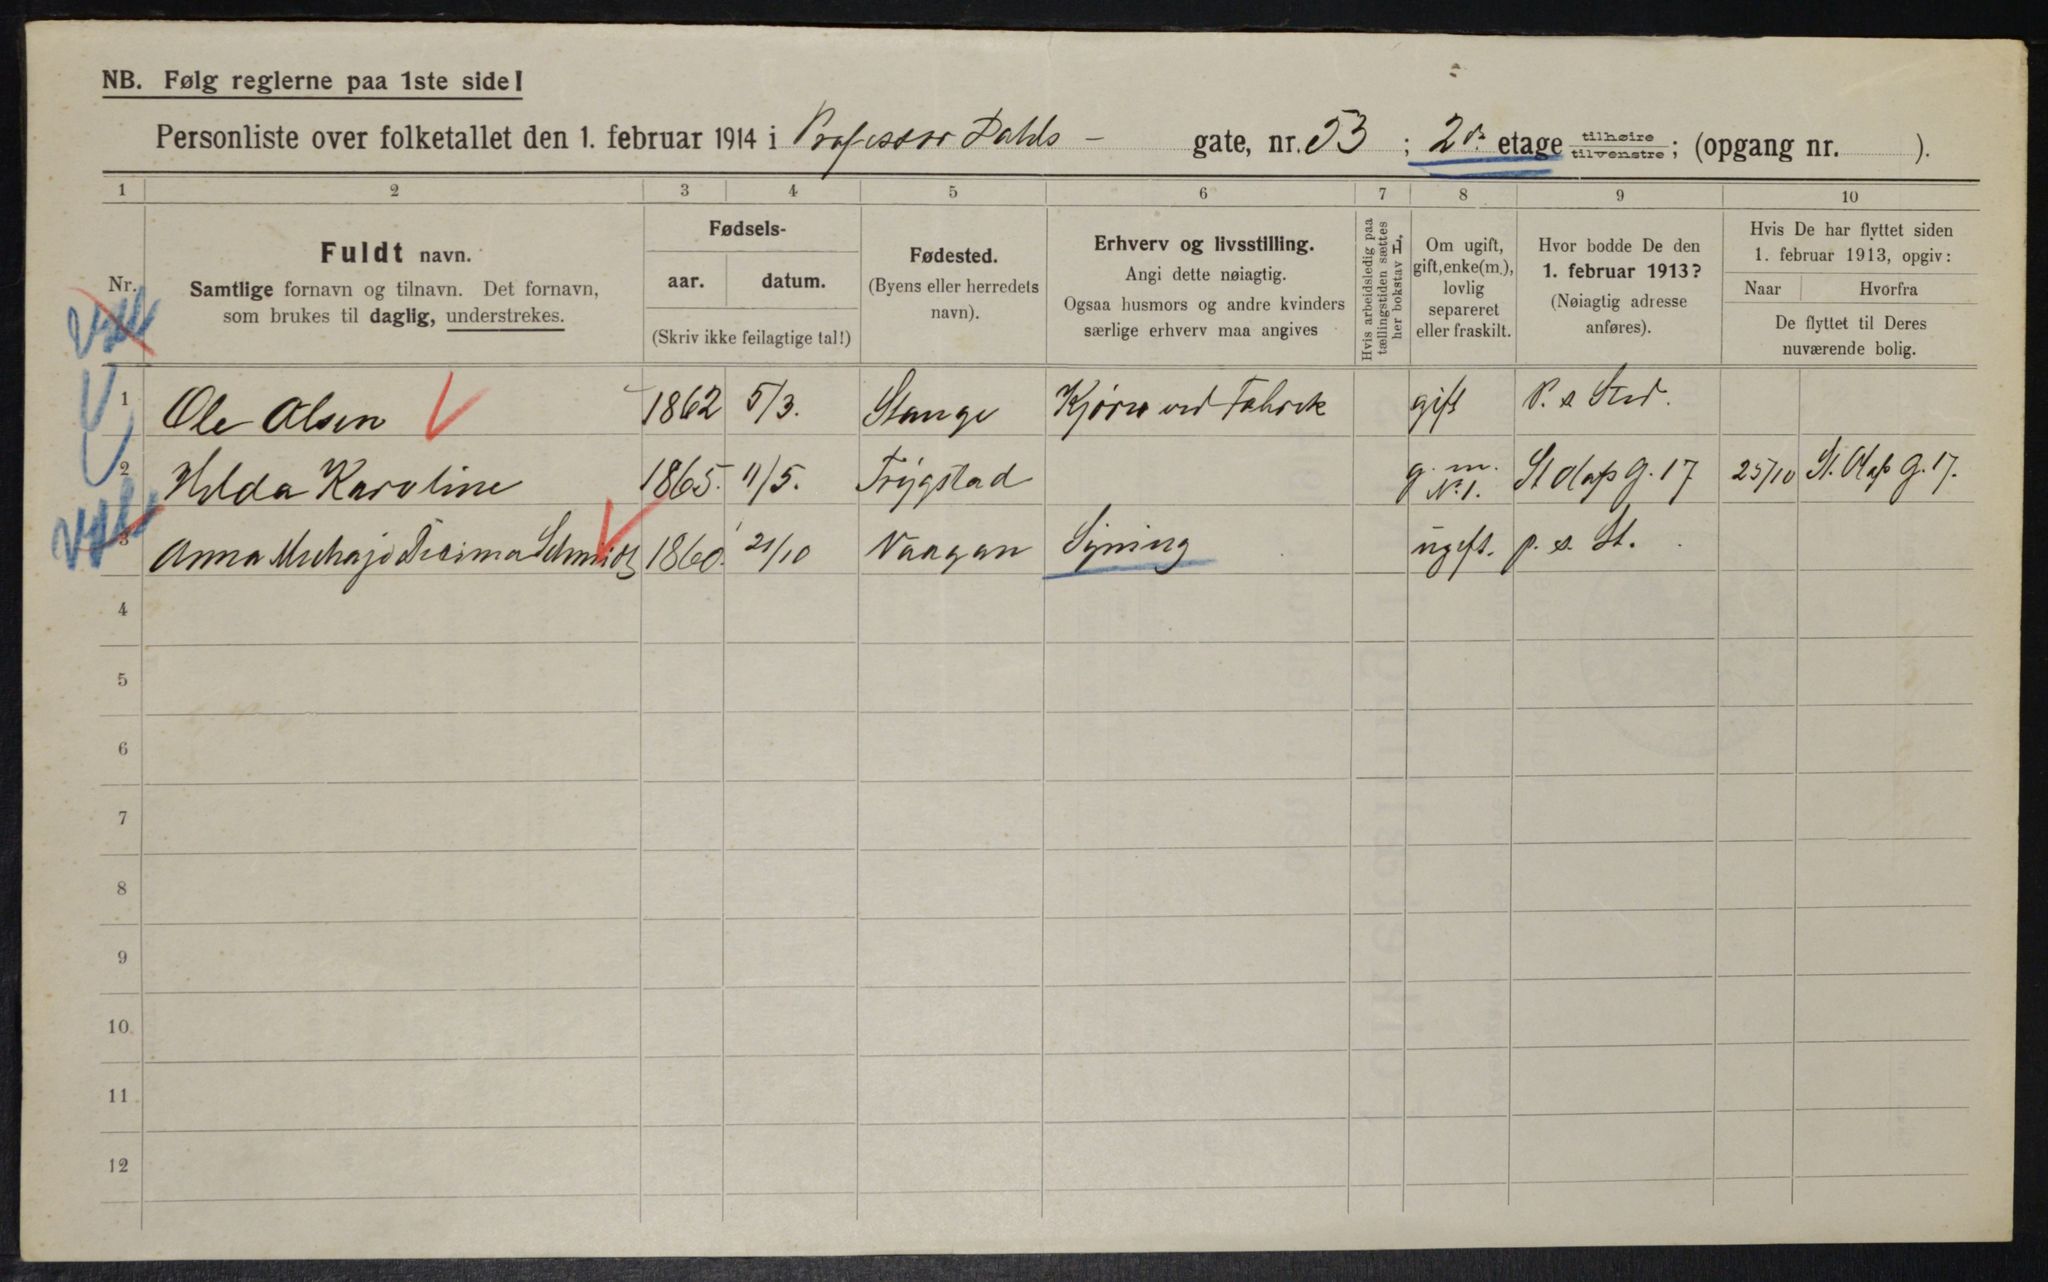 NB. Følg reglerne paa 1ste side!
Personliste over folketallet den 1. februar 1914 i Professor Dahls - gate, nr. 53 ; 2den etage tilhøire tilvenstre ; (opgang nr. ).
1 2 3 4 5 6 7 8 9 10
Nr.
Fuldt navn.
Samtlige fornavn og tilnavn. Det fornavn,
som brukes til daglig, understrekes.
Fødsels-
aar. datum.
(Skriv ikke feilagtige tal!)
Fødested.
(Byens eller herredets
navn).
Erhverv og livsstilling.
Angi dette nøiagtig.
Ogsaa husmors og andre kvinders
særlige erhverv maa angives
Hvis arbeidsledig paa
tællingstiden sættes
her bokstav L.
Om ugift,
gift, enke(m.),
lovlig
separeret
eller fraskilt.
Hvor bodde De den
1. februar 1913?
(Nøiagtig adresse
anføres).
Hvis De har flyttet siden
1. februar 1913, opgiv:
Naar Hvorfra
De flyttet til Deres
nuværende bolig.
1 Ole Olsen 1862 5/3. Stange Kjører ved Fabrik gift P. s Sted.
2 Hilda Karoline 1865. 11/5. Trygstad g. m. No 1. St Olafs G. 17 25/10 St. Olafs G. 17.
3 Anna Schmidt 1860. 21/10 Vaagan Syning ugift. p. s. St.
4
5
6
7
8
9
10
11
12